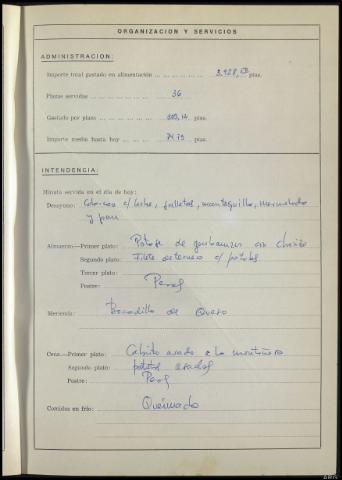 ORGANIZACION Y SERVICIOS
ADMINISTRACION:
Importe total gastado en alimentación ... ptas.
Plazas servidas ... 36
Gastado por plaza ... ptas.
Importe medio hasta hoy ... 74,73 ptas.
INTENDENCIA:
Minuta servida en el día de hoy:
Desayuno: c/ leche, galletas, mantequilla, mermelada
y pan
Almuerzo—Primer plato: Potaje de garbanzos con chorizo
Segundo plato: Filete de ternera c/ patatas
Tercer plato:
Postre: Peras
Merienda: Bocadillo de Queso
Cena.—Primer plato: Cabrito asado a la montañera
Segundo plato: patatas asadas
Postre: Peras
Comidas en frío: Queimada